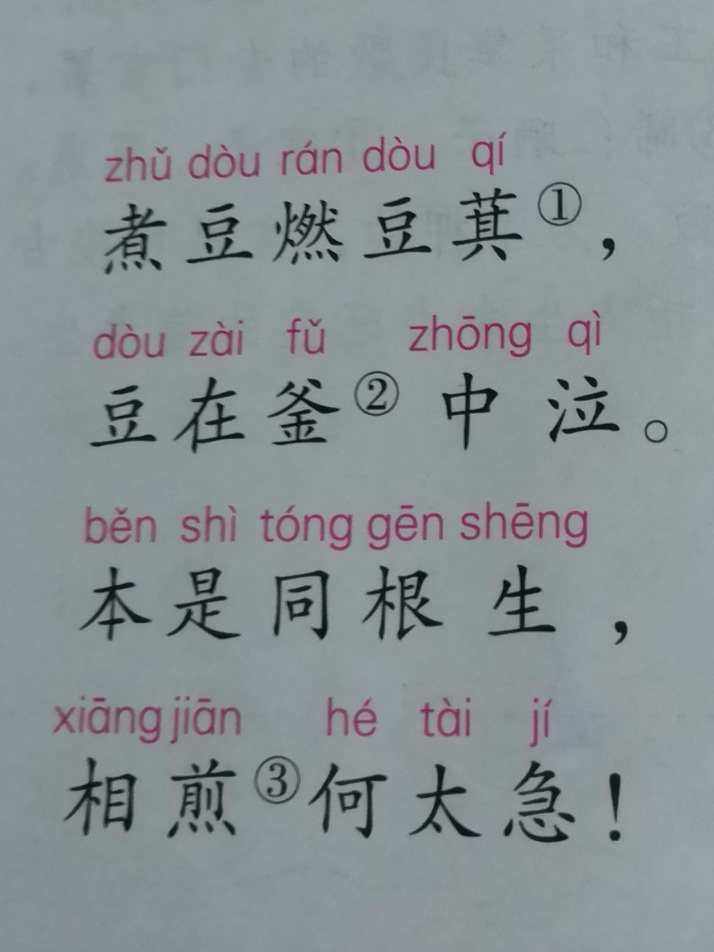 zhǔ dòu rán dòu qí
煮豆燃豆萁①，
dòu zài fǔ zhōng qì
豆在釜②中泣。
běn shì tóng gēn shēng
本是同根生，
xiāng jiān hé tài jí
相煎③何太急！